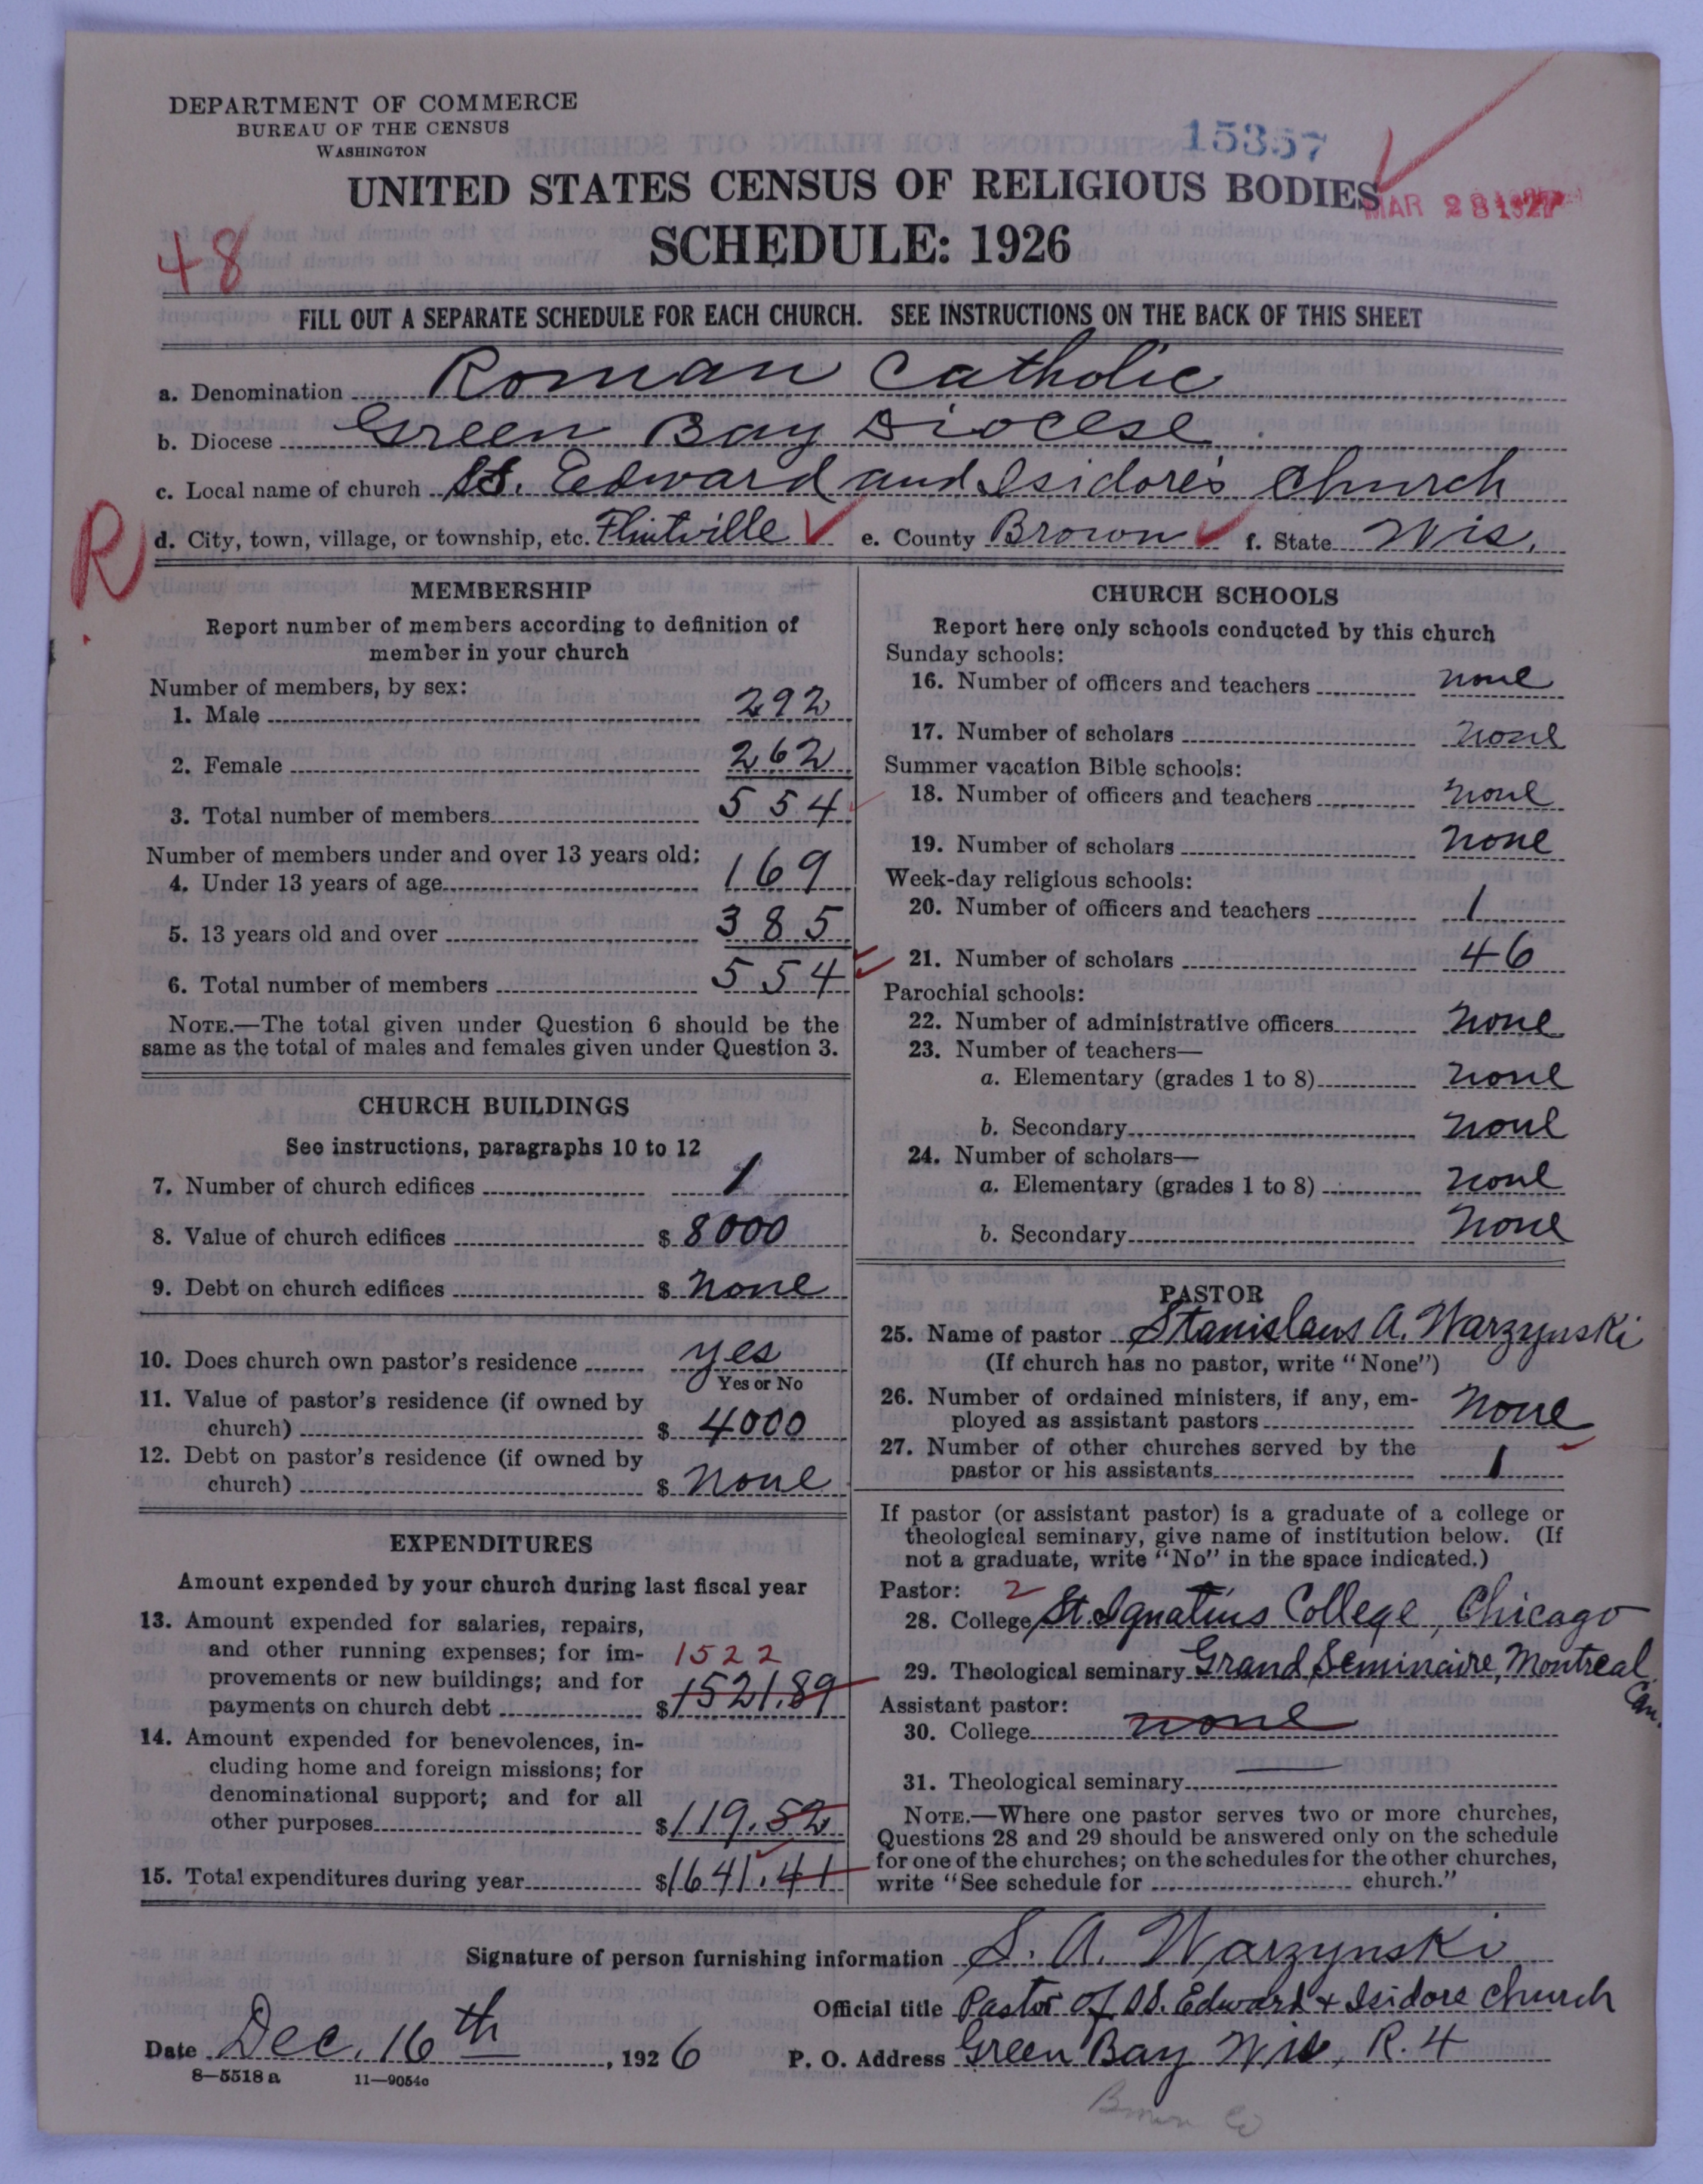 DEPARTMENT OF COMMERCE
BUREAU OF THE CENSUS
WASHINGTON
15357
UNITED STATES CENSUS OF RELIGIOUS BODIES
MAR 28 1927
SCHEDULE: 1926
48
FILL OUT A SEPARATE SCHEDULE FOR EACH CHURCH. SEE INSTRUCTIONS ON THE BACK OF THIS SHEET
a. Denomination Roman Catholic
b. Diocese Green Bay Diocese
c. Local name of church SS. Edward and Isidore's Church
R
d. City, town, village, or township, etc. Flintville e. County Brown f. State Wis.
MEMBERSHIP
Report number of members according to definition of
member in your church
Number of members, by sex:
1. Male 292
2. Female 262
3. Total number of members 554
Number of members under and over 13 years old:
4. Under 13 years of age 169
5. 13 years old and over 385
6. Total number of members 554
NOTE.—The total given under Question 6 should be the
same as the total of males and females given under Question 3.
CHURCH BUILDINGS
See instructions, paragraphs 10 to 12
7. Number of church edifices 1
8. Value of church edifices $ 8000
9. Debt on church edifices $ none
10. Does church own pastor's residence yes
Yes or No
11. Value of pastor's residence (if owned by
church) $ 4000
12. Debt on pastor's residence (if owned by
church) $ none
EXPENDITURES
Amount expended by your church during last fiscal year
13. Amount expended for salaries, repairs,
and other running expenses; for im- 1522
provements or new buildings; and for
payments on church debt $1521.89
14. Amount expended for benevolences, in-
cluding home and foreign missions; for
denominational support; and for all
other purposes $119.52
15. Total expenditures during year $1641.41
CHURCH SCHOOLS
Report here only schools conducted by this church
Sunday schools:
16. Number of officers and teachers none
17. Number of scholars none
Summer vacation Bible schools:
18. Number of officers and teachers none
19. Number of scholars none
Week-day religious schools:
20. Number of officers and teachers 1
21. Number of scholars 46
Parochial schools:
22. Number of administrative officers none
23. Number of teachers—
a. Elementary (grades 1 to 8) none
b. Secondary none
24. Number of scholars—
a. Elementary (grades 1 to 8) none
b. Secondary none
PASTOR
25. Name of pastor Stanislaus A. Warzynski
(If church has no pastor, write "None")
26. Number of ordained ministers, if any, em-
ployed as assistant pastors none
27. Number of other churches served by the
pastor or his assistants 1
If pastor (or assistant pastor) is a graduate of a college or
theological seminary, give name of institution below. (If
not a graduate, write "No" in the space indicated.)
Pastor: 2
28. College St. Ignatius College, Chicago
29. Theological seminary Grand Seminaire, Montreal Can.
Assistant pastor:
30. College none
31. Theological seminary
NOTE.—Where one pastor serves two or more churches,
Questions 28 and 29 should be answered only on the schedule
for one of the churches; on the schedules for the other churches,
write "See schedule for church."
Signature of person furnishing information S. A. Warzynski
Official title Pastor of SS. Edward + Isidore Church
Date Dec. 16th, 1926 P. O. Address Green Bay Wis, R. 4
8—5518 a 11—9054c
Brown Co